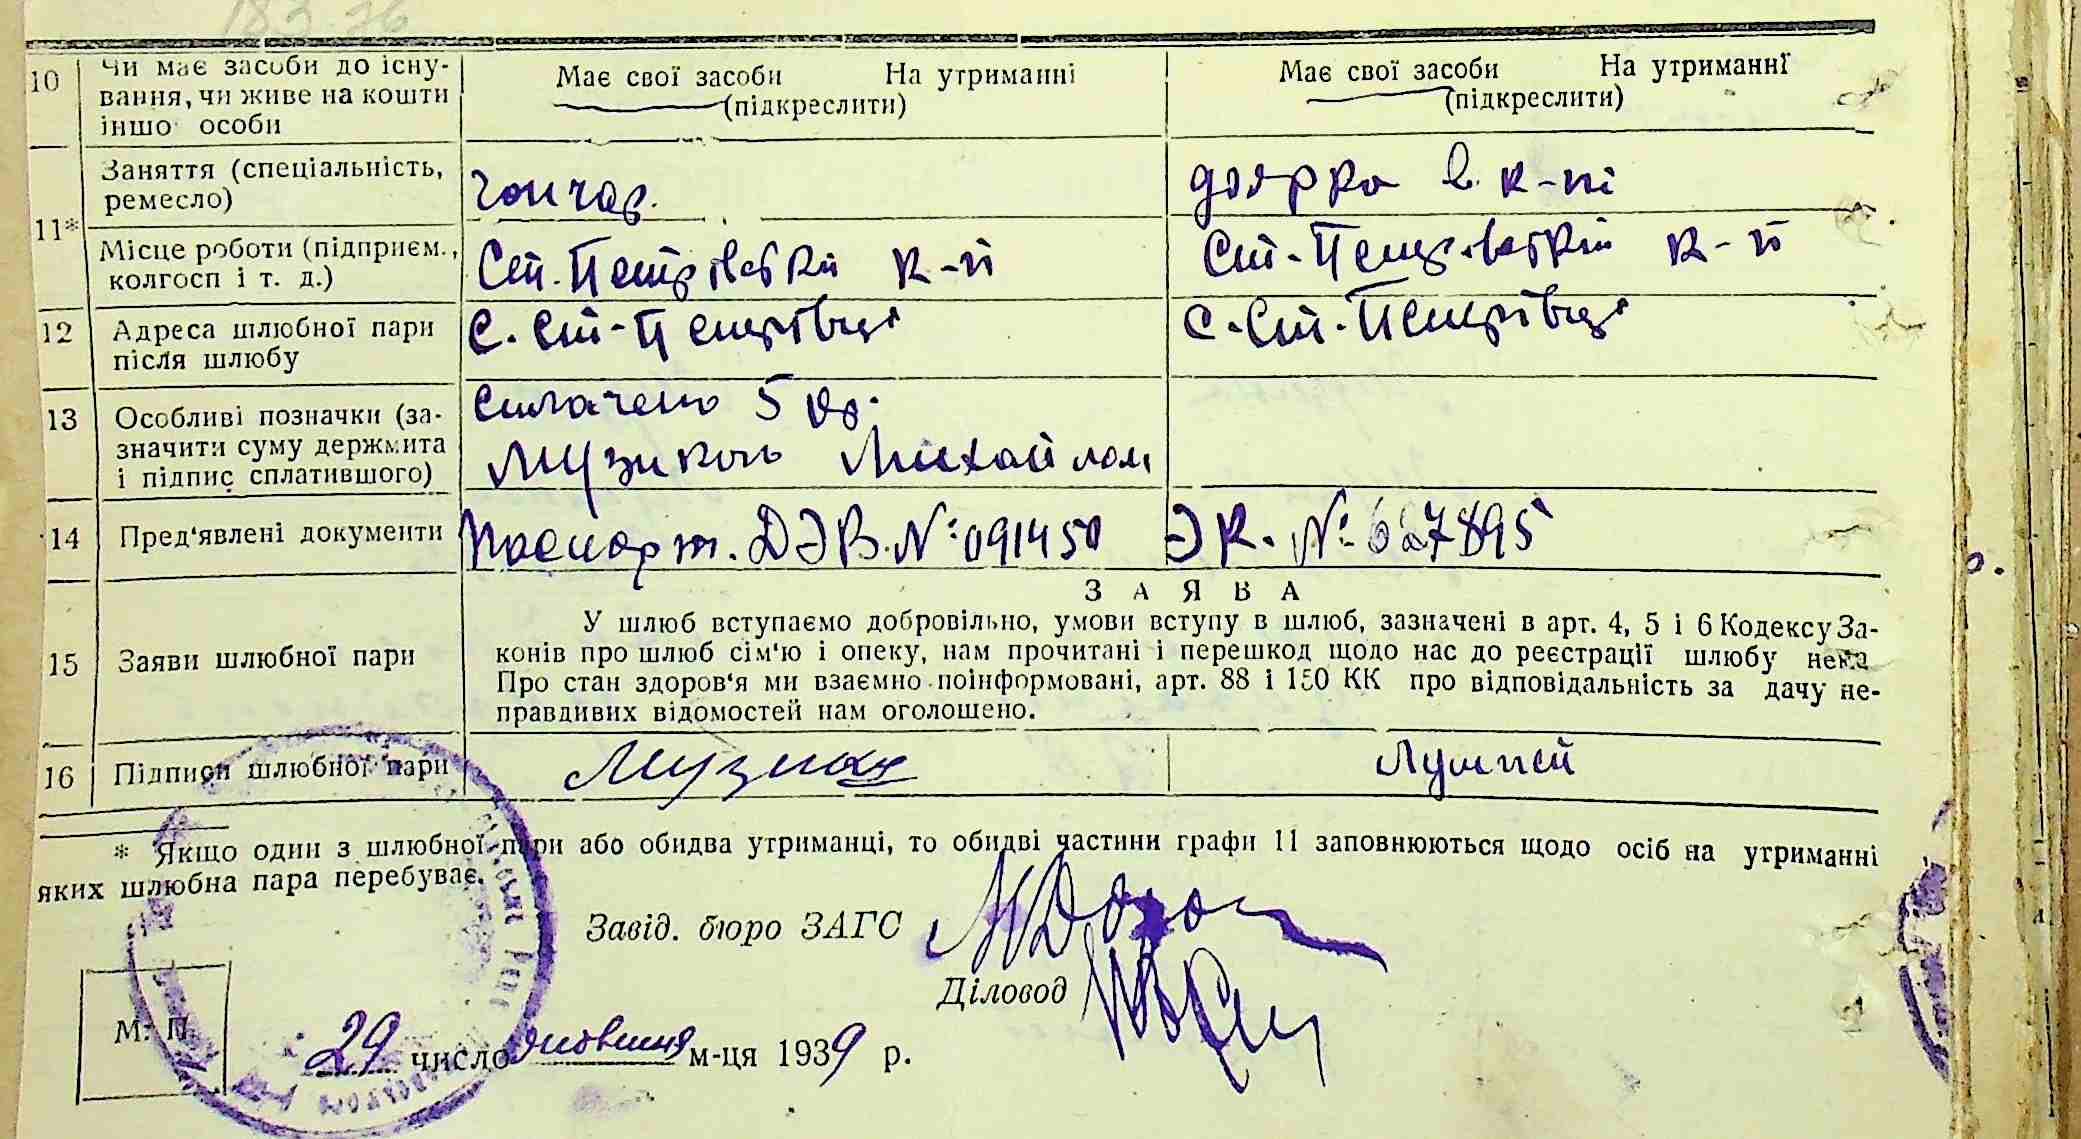 183.76
10 Чи має засоби до існу- Має свої засоби На утриманні Має свої засоби На утриманні
вання, чи живе на кошти (підкреслити) (підкреслити)
іншо особи
11* Заняття (спеціальність, ремесло) гончар. доярка в к-пі
Місце роботи (підприєм., колгосп і т. д.) Ст.-Петрівський к-п Ст.-Петрівський к-п
12 Адреса шлюбної пари після шлюбу с. Ст-Петрівці с. Ст.-Петрівці
13 Особливі позначки (за- сплачено 5 кр.
значити суму держмита Музикою Михайлом
і підпис сплатившого)
14 Пред'явлені документи Паспорт. ДЭВ. №: 091450 ЭК. №: 627895
З А Я В А
У шлюб вступаємо добровільно, умови вступу в шлюб, зазначені в арт. 4, 5 і 6 Кодексу За-
15 Заяви шлюбної пари конів про шлюб сім'ю і опеку, нам прочитані і перешкод щодо нас до реєстрації шлюбу нема
Про стан здоров'я ми взаємно поінформовані, арт. 88 і 150 КК про відповідальність за дачу не-
правдивих відомостей нам оголошено.
16 Підписи шлюбної пари Музика Лушпей
* Якщо один з шлюбної пари або обидва утриманці, то обидві частини графи 11 заповнюються щодо осіб на утриманні
яких шлюбна пара перебуває.
Завід. бюро ЗАГС
Діловод
М. П.
29 число жовтня м-ця 1939 р.